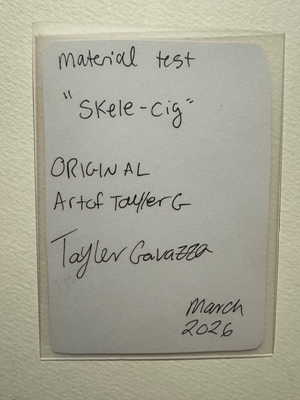 Material test
"Skele-cig"
ORIGINAL
Artof Tayler G
Tayler Gavazza
March
2026